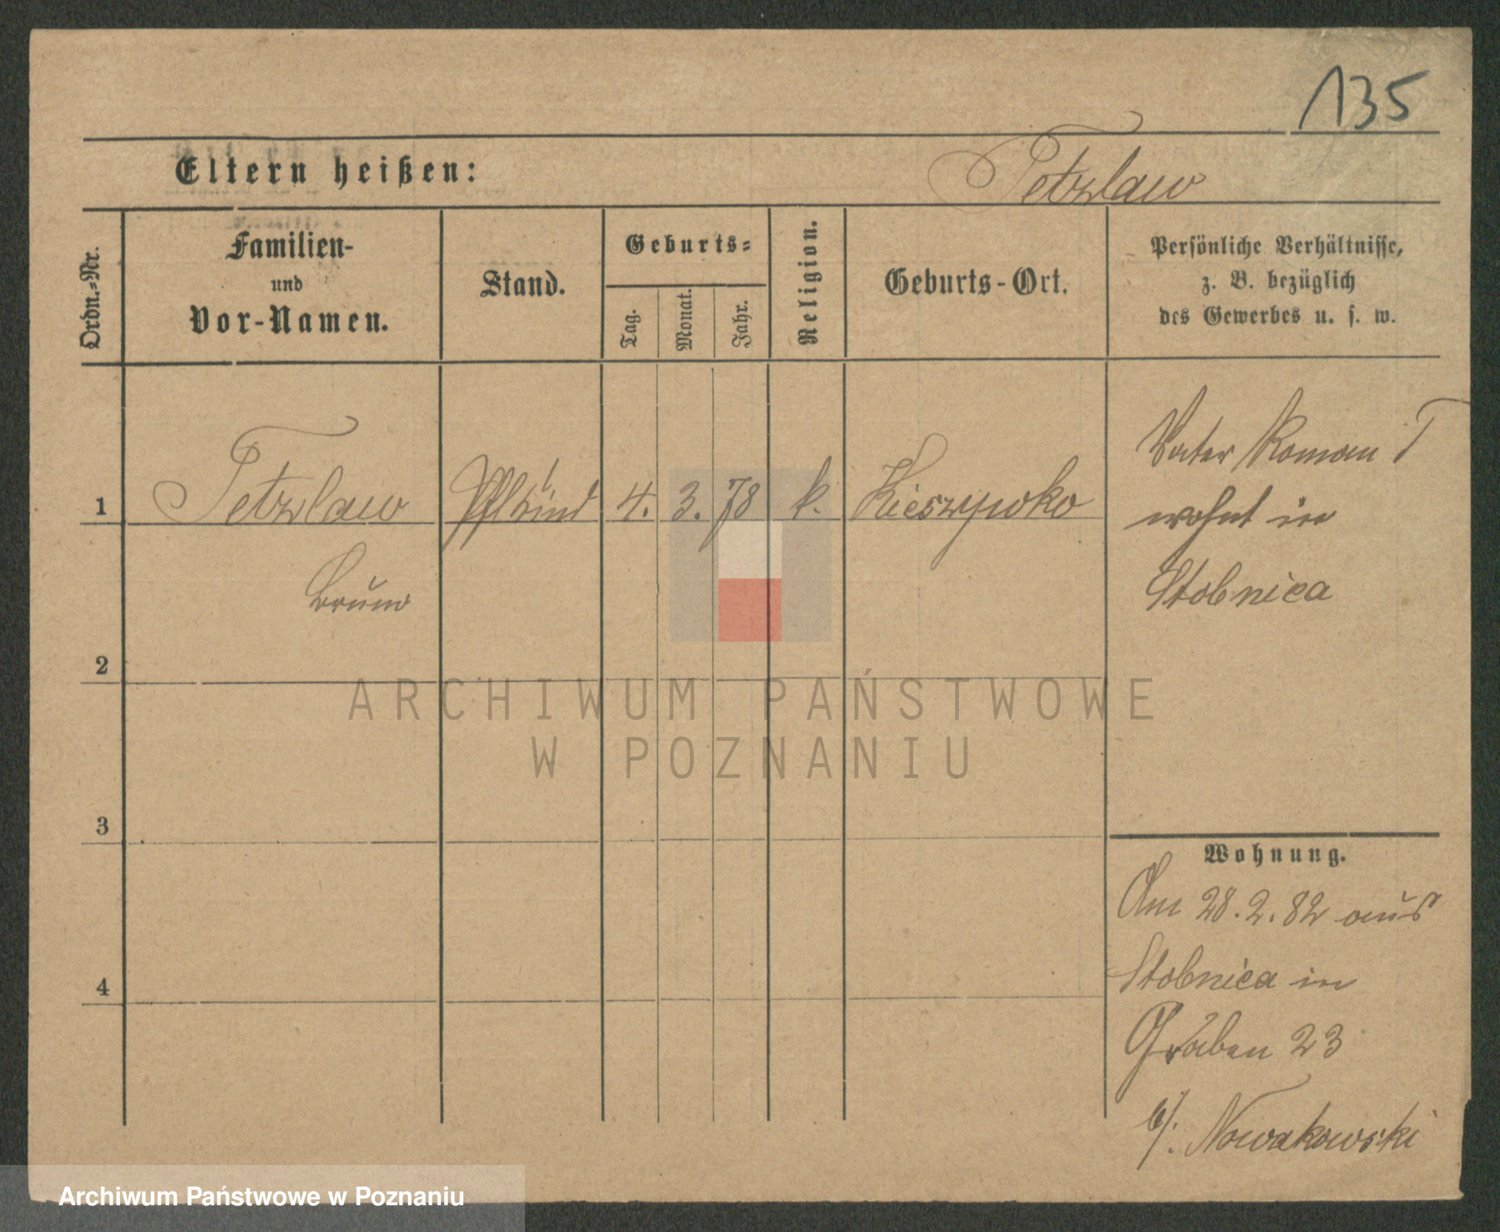 135
Eltern heißen: Tetzlaw
Ordn.-Nr.
Familien-
und
Vor-Namen.
Stand.
Geburts-
Tag.
Monat.
Jahr.
Religion.
Geburts-Ort.
Persönliche Verhältnisse,
z. B. bezüglich
des Gewerbes u. s. w.
1 Tetzlaw 4. 3. 78 k.
Bruno
Vater Roman T
wohnt in
Stobnica
2
3
4
Wohnung.
Am 28.2.82 aus
Stobnica in
Graben 23
b/. Nowakowski
ARCHIWUM PAŃSTWOWE
W POZNANIU
Archiwum Państwowe w Poznaniu